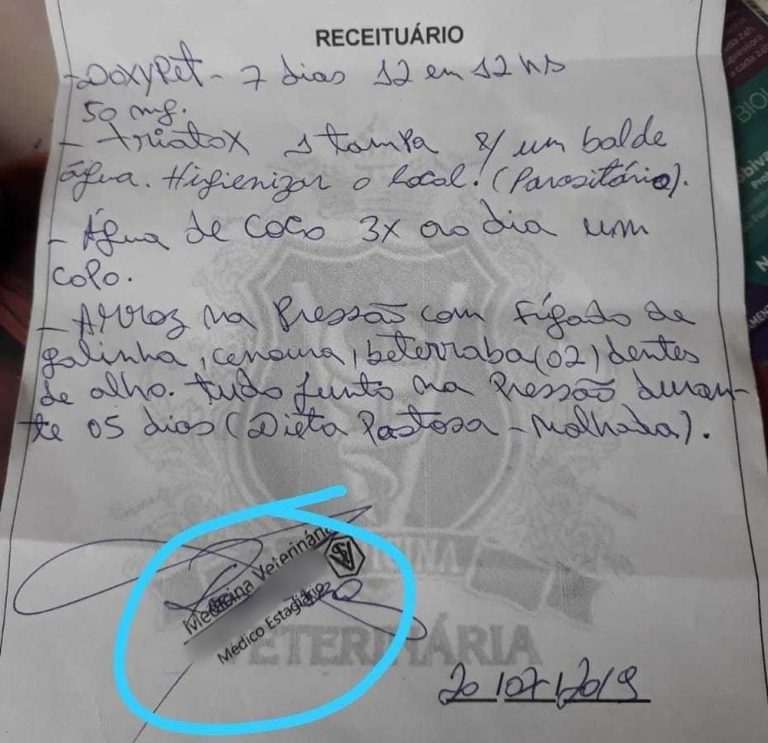 RECEITUÁRIO
- DoxyPet - 7 dias 12 em 12 hs
50 mg.
- triatox 1 tampa p/ um balde
água. Higienizar o local! (Parasitário).
- Água de coco 3x ao dia um
copo.
- Arroz na Pressão com Fígado de
galinha, cenoura, beterraba (02) dentes
de alho. tudo junto na Pressão duran-
te 05 dias (Dieta Pastosa - Molhada).
Medicina Veterinária
Médico Estagiário
MEDICINA
VETERINÁRIA
20/07/2019
BIO